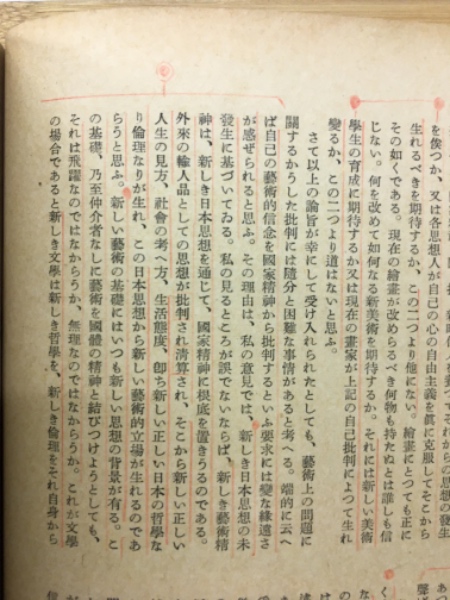 を俟つか、又は各思想人が自己の心の自由主義を眞に克服してそこから
生れるべきを期待するか、この二つより他にない。繪畫にとつても正に
その如くである。現在の繪畫が改めらるべき何物も持たぬとは誰しも信
じない。何を改めて如何なる新美術を期待するか。それには新しい美術
學生の育成に期待するか又は現在の畫家が上記の自己批判によつて生れ
變るか、この二つより道はないと思ふ。
さて以上の論旨が幸にして受け入れられたとしても、藝術上の問題に
關するかうした批判には隨分と困難な事情があると考へる。端的に云へ
ば自己の藝術的信念を國家精神から批判するといふ要求には變な緣遠さ
が感ぜられると思ふ。その理由は、私の意見では、新しき日本思想の未
發生に基づいてゐる。私の見るところが誤でないならば、新しき藝術精
神は、新しき日本思想を通じて、國家精神に根底を置きうるのである。
外來の輸入品としての思想が批判され清算され、そこから新しい正しい
人生の見方、社會の考へ方、生活態度、卽ち新しい正しい日本の哲學な
り倫理なりが生れ、この日本思想から新しい藝術的立場が生れるのであ
らうと思ふ。新しい藝術の基礎にはいつも新しい思想の背景が有る。こ
の基礎、乃至仲介者なしに藝術を國體の精神と結びつけようとしても、
それは飛躍なのではなからうか、無理なのではなからうか。これが文學
の場合であると新しき文學は新しき哲學を、新しき倫理をそれ自身から